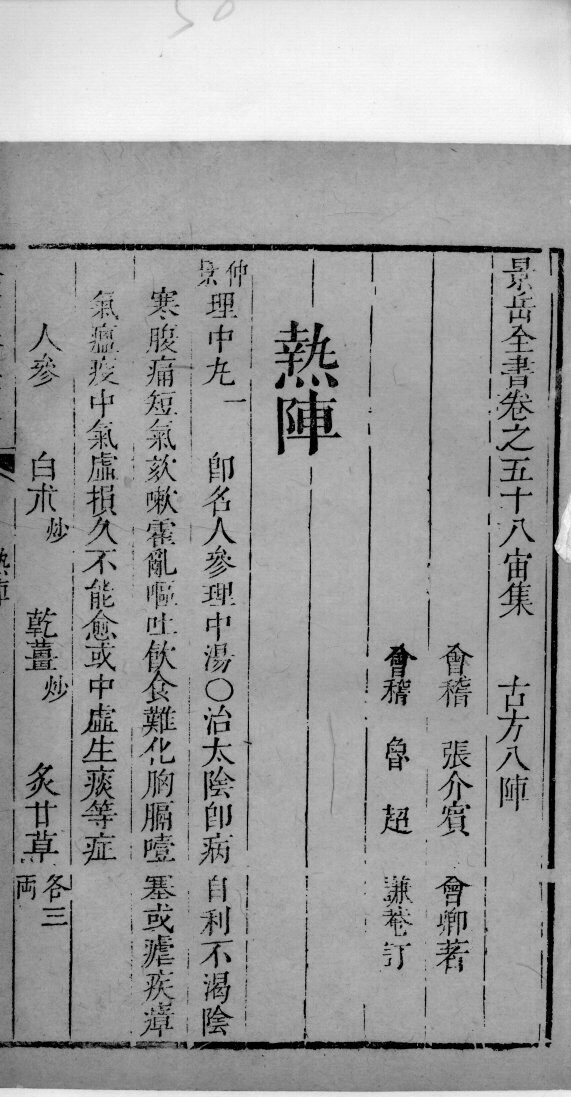 景岳全書卷之五十八宙集　古方八陣
會稽　張介賓　會卿著
會稽　魯　超　謙菴訂
熱陣
仲景理中丸一　卽名人參理中湯○治太陰卽病自利不渴陰
寒腹痛短氣欬嗽霍亂嘔吐飲食難化胸膈噎塞或瘧疾瘴
氣瘟疫中氣虛損久不能愈或中虛生痰等症
人參　白朮炒　乾薑炒　炙甘草各三兩
熱陣